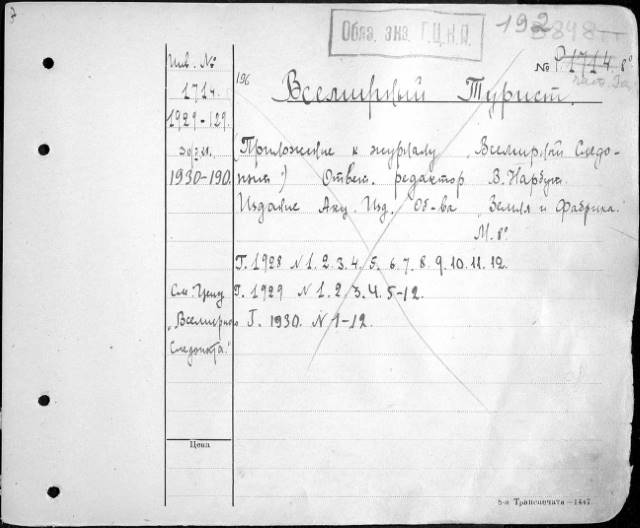 Обяз. экз. Г.Ц.К.П.
192
3848
№ Р1714 8°
Инв. №
1714.
196
Всемирный Турист.
1929-129.
(Приложение к журналу „Всемирный Следо-
1930-190.
пыт“) Ответ. редактор В. Нарбут.
Издание Акц. Изд. Об-ва „Земля и Фабрика“.
М. 8°.
Г. 1928 N 1. 2. 3. 4. 5. 6. 7. 8. 9. 10. 11. 12.
См. Цену
Г. 1929 N 1. 2. 3. 4. 5-12.
„Всемирного
Г. 1930. N 1-12.
Следопыта.“
Цена
5-я Транспечать—1447